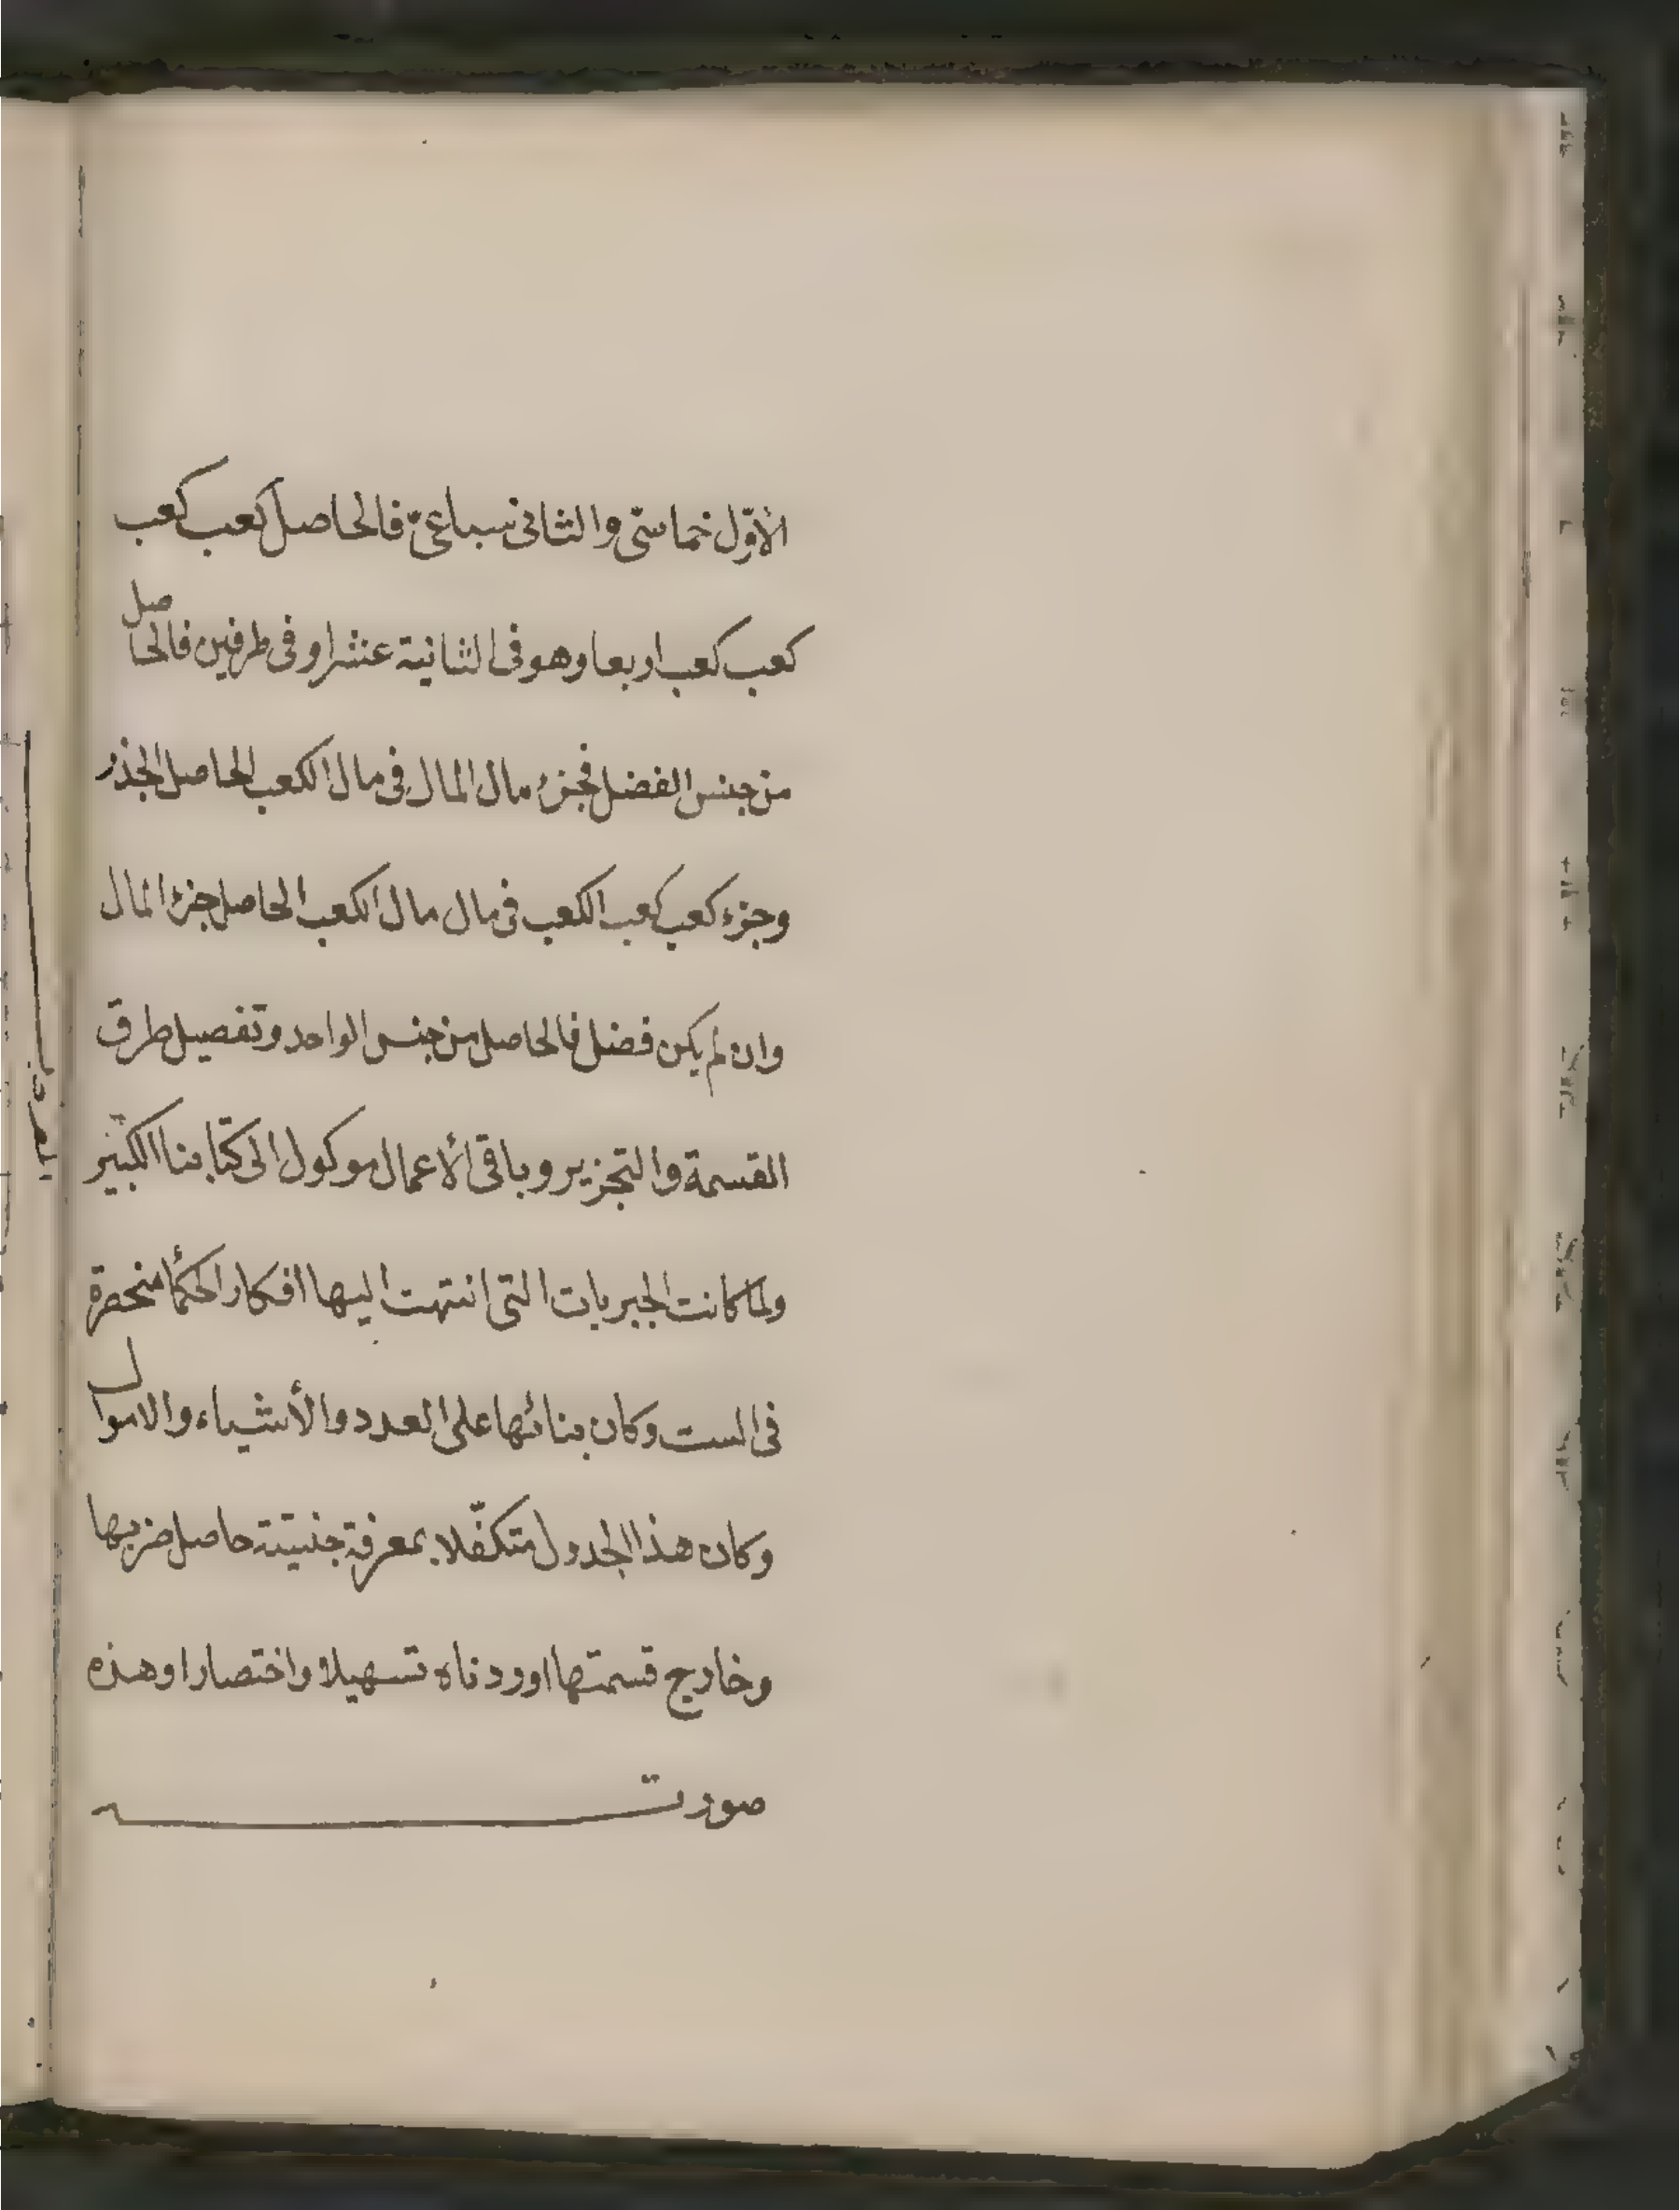 الأوّل خماسيّ والثاني سباعيّ فالحاصل كعب كعب
كعب كعب اربعا وهو في الثانية عشر او في طرفين فالحاصل
من جنس الفضل فجزء مال المال في مال الكعب الحاصل الجذر
وجزء كعب كعب الكعب في مال مال الكعب الحاصل جزء المال
وان لم يكن فضل فالحاصل من جنس الواحد وتفصيل طرق
القسمة والتجزير وباقي الأعمال موكول الى كتابنا الكبير
ولما كانت الجبريات التي انتهت اليها افكار الحكمأ منحصرة
في الست وكان بنائها على العدد والأشياء والاموال
وكان هذا الجدول متكفّلا بمعرفة جنيتة حاصل ضربها
وخارج قسمتها اوردناه تسهيلا واختصارا وهذه
صورته